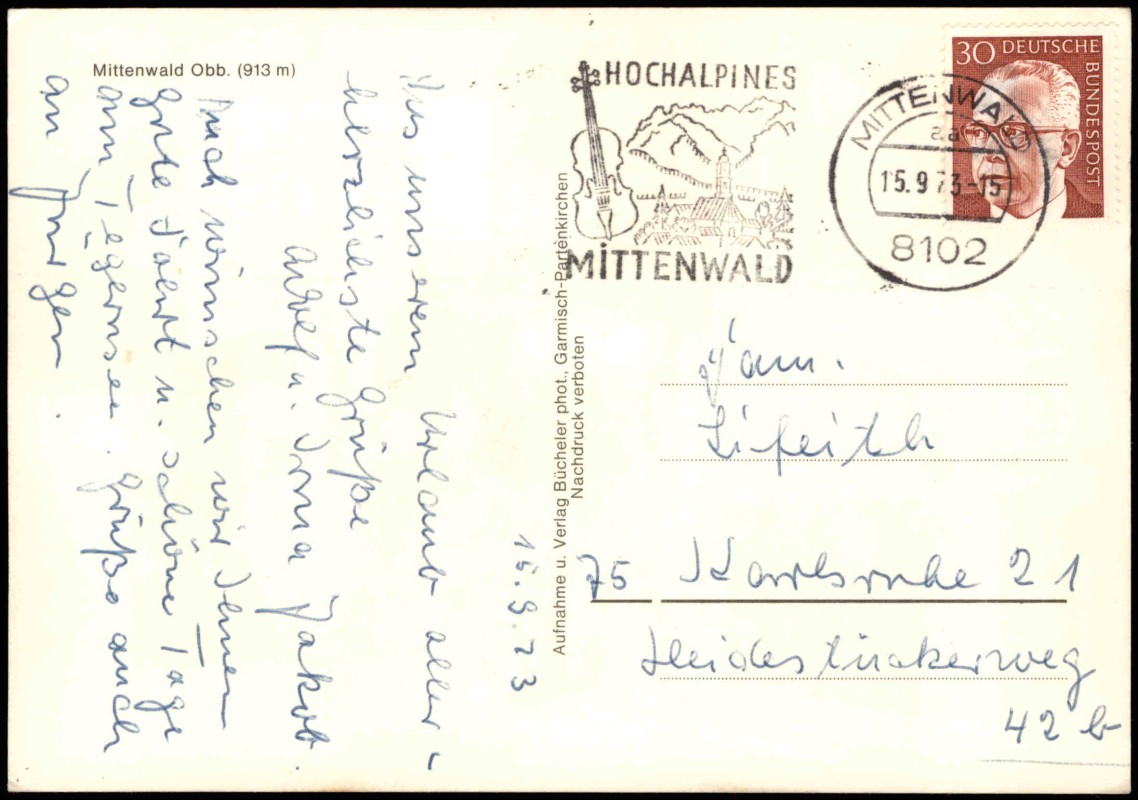 Mittenwald Obb. (913 m)
15.9.73
Aus unserem Urlaub aller-
herzlichste Grüße
Adolf u. Irma Jakob
Auch wünschen wir Ihnen
Gute Fahrt u. schöne Tage
am Tegernsee. Grüße auch
an Jürgen.
Aufnahme u. Verlag Bücheler phot., Garmisch-Partenkirchen
Nachdruck verboten
HOCHALPINES
MITTENWALD
MITTENWALD
aa
15.9.73-15
8102
30 DEUTSCHE
BUNDESPOST
Fam.
75 Karlsruhe 21
Heidestückerweg
42 b